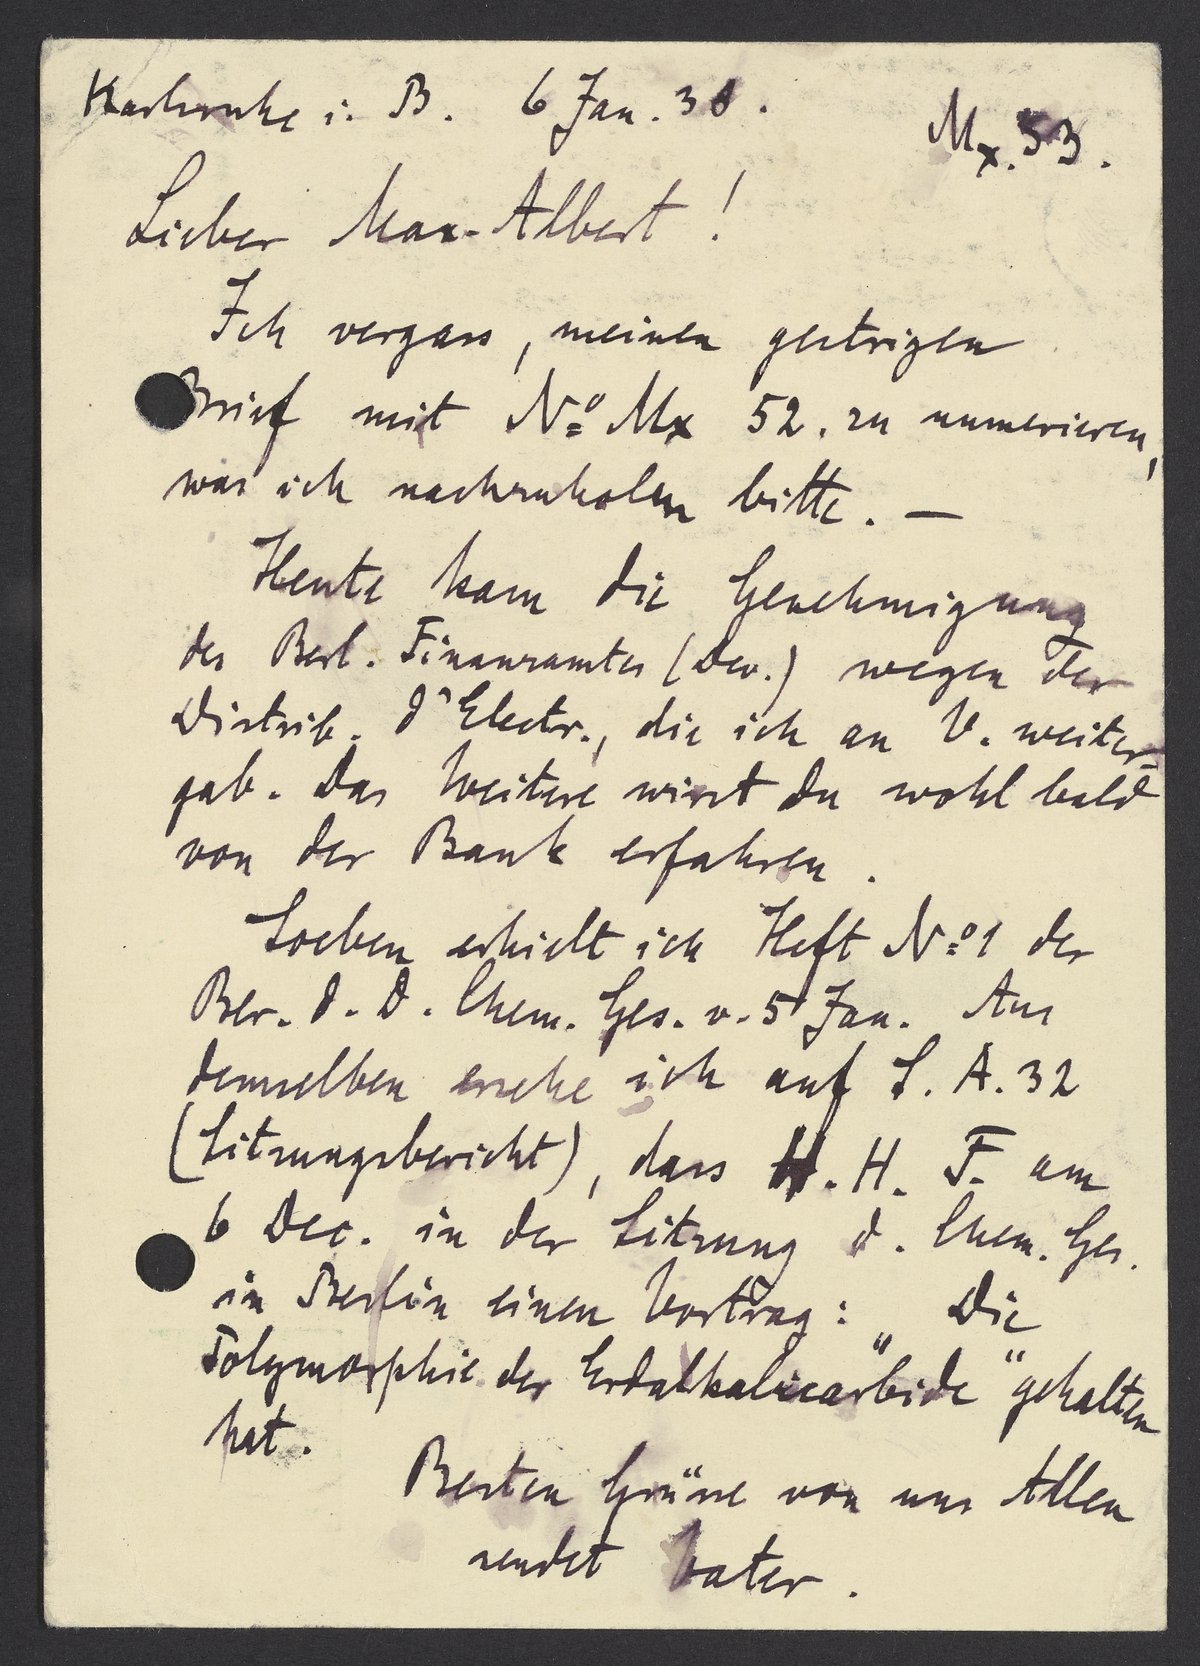 Karlsruhe i. B. 6 Jan. 38.
Mx. 53.
Lieber Max-Albert!
Ich vergass, meinen gestrigen
Brief mit No Mx 52. zu numerieren,
was ich nachzuholen bitte. —
Heute kam die Genehmigung
des Berl. Finanzamtes (Dev.) wegen der
Distrib. d'Electr., die ich an V. weiter-
gab. Das Weitere wirst Du wohl bald
von der Bank erfahren.
Soeben erhielt ich Heft No 1 der
Ber. d. D. Chem. Ges. v. 5 Jan. Aus
demselben ersehe ich auf S. A. 32
(Sitzungsbericht), dass H. H. F. am
6 Dec. in der Sitzung d. Chem. Ges.
in Berlin einen Vortrag: „Die
Polymorphie der Erdalkalicarbide" gehalten
hat.
Besten Grüsse von uns Allen
sendet Vater.